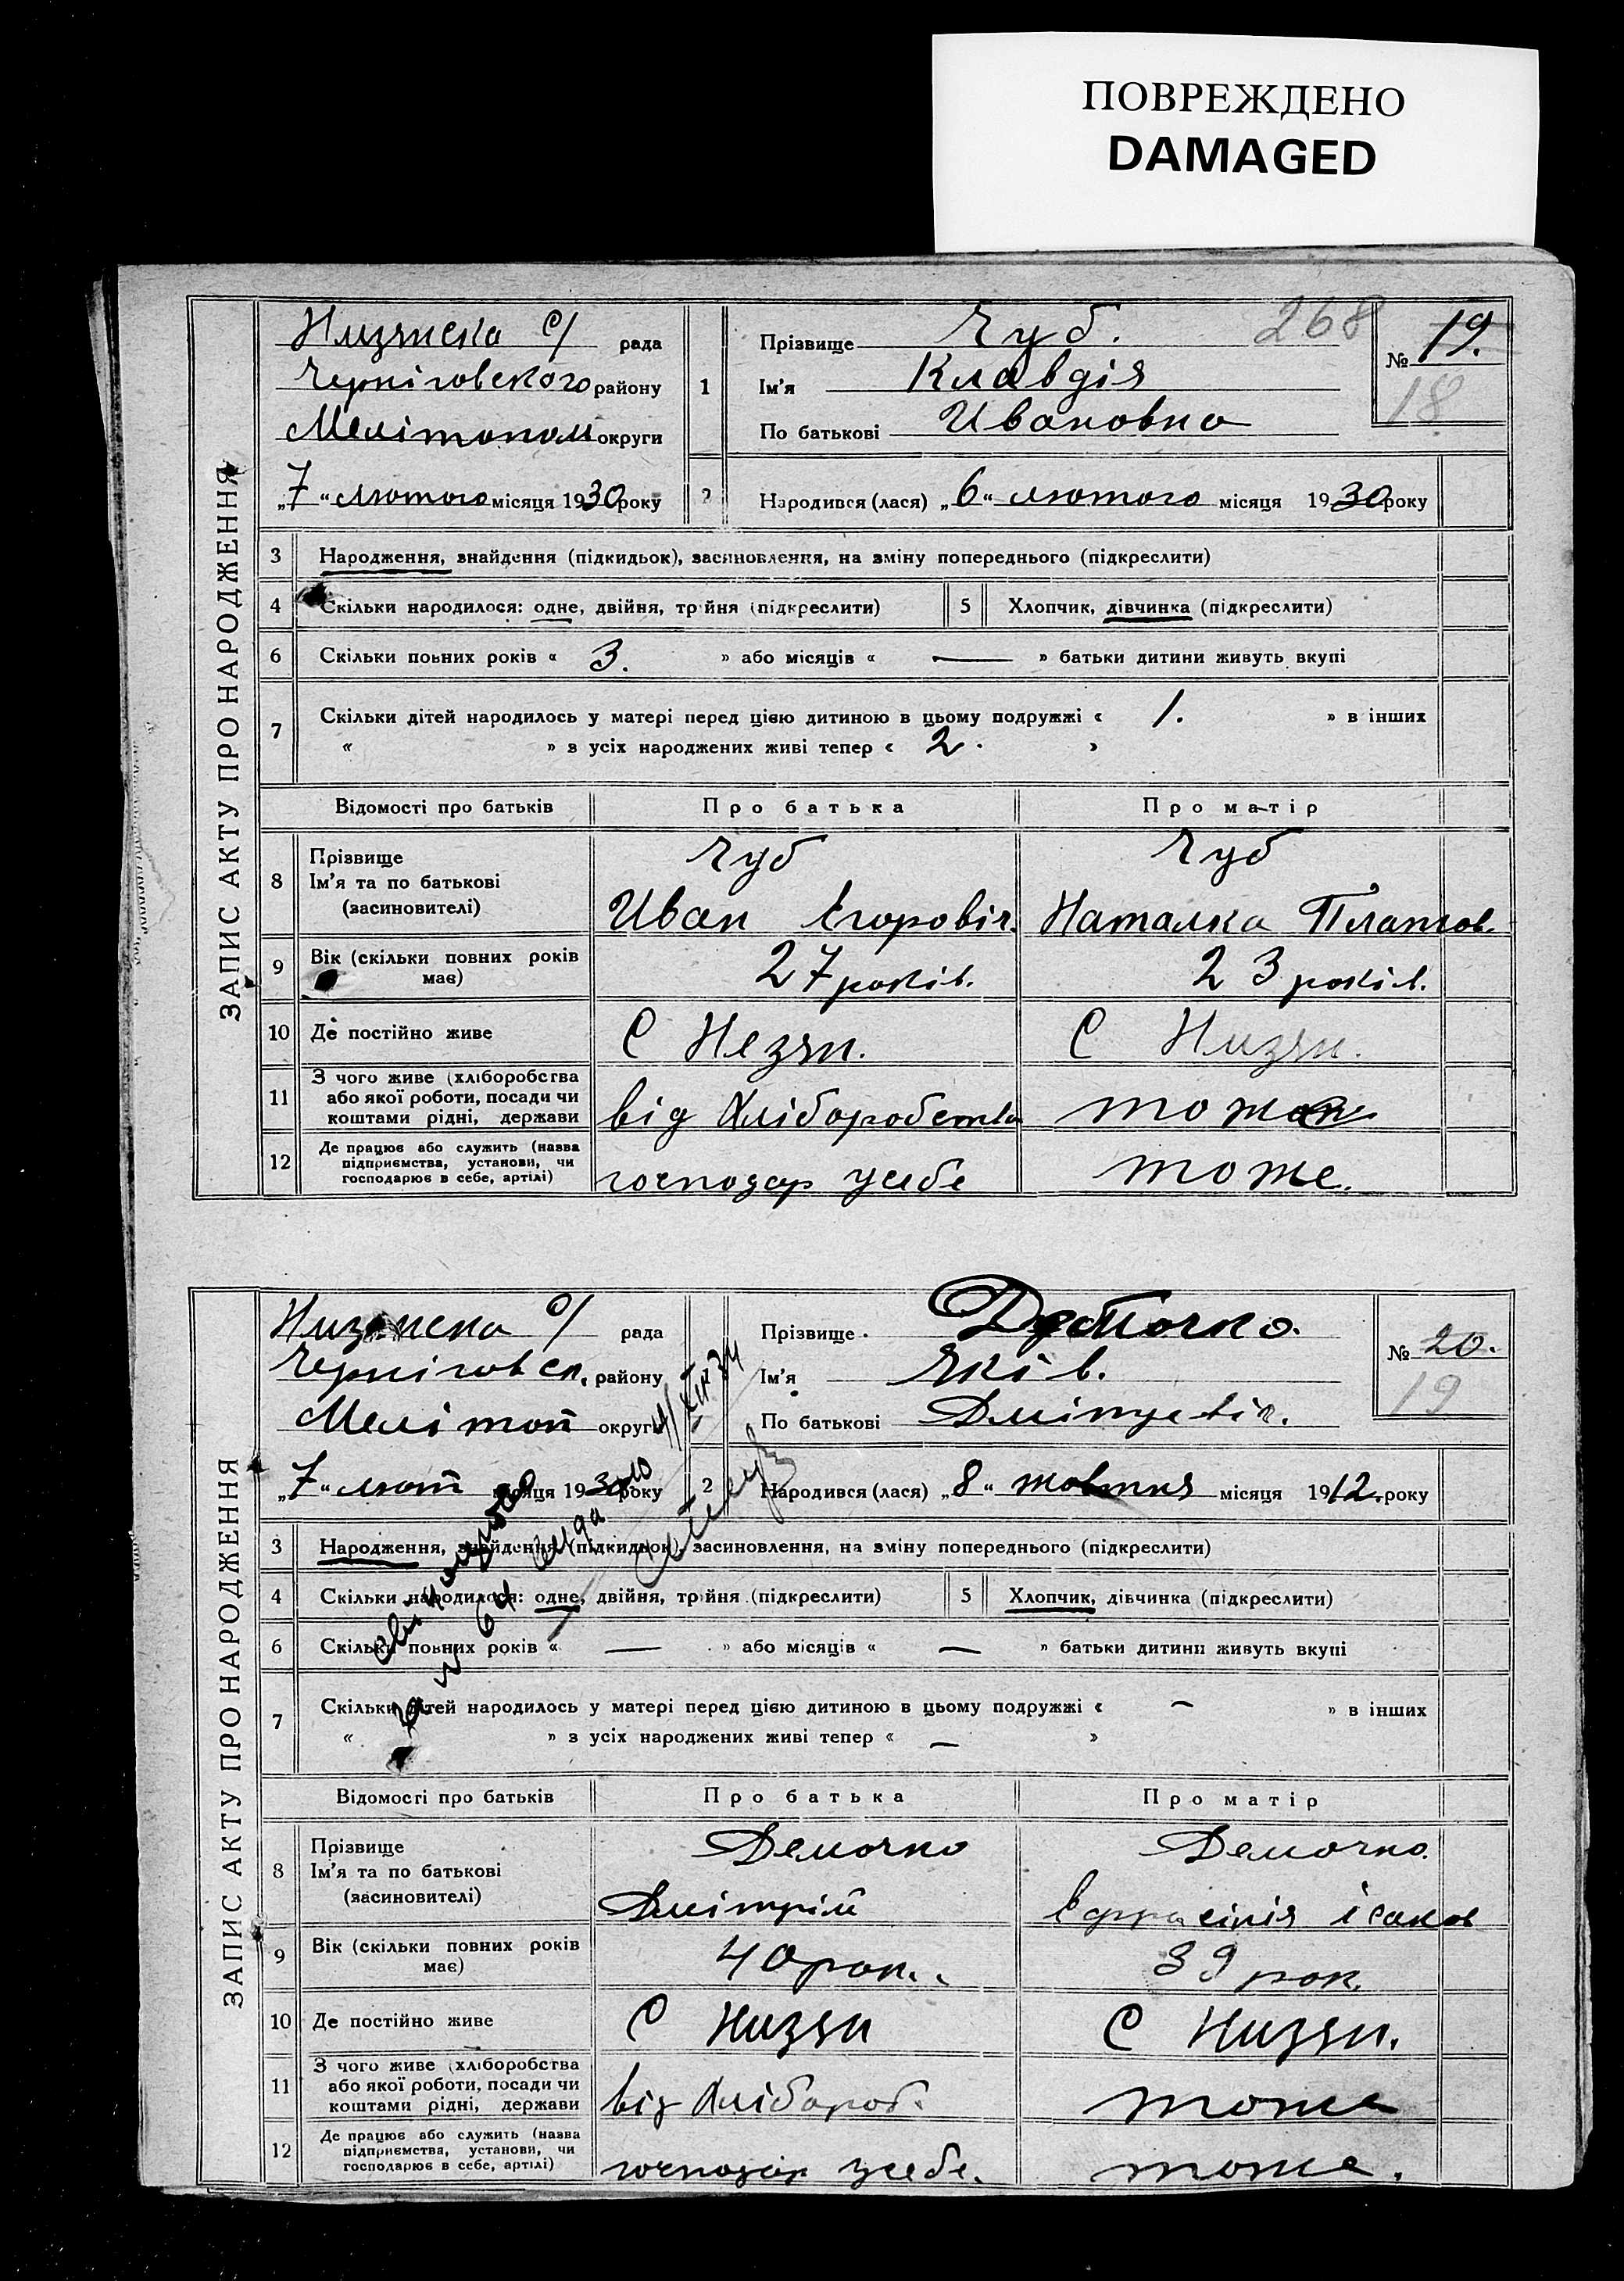 ПОВРЕЖДЕНО
DAMAGED
268
ЗАПИС АКТУ ПРО НАРОДЖЕННЯ
Низянска с/ рада
Чернiговского району
Мелiтопол округи
„7“ лютого місяця 1930 року
1 Прізвище Чуб.
Ім'я Клавдiя
По батькові Ивановна
№ 19.
18
2 Народився (лася) „6“ лютого місяця 1930 року
3 Народження, знайдення (підкидьок), засиновлення, на зміну попереднього (підкреслити)
4 Скільки народилося: одне, двійня, тройня (підкреслити) 5 Хлопчик, дівчинка (підкреслити)
6 Скільки повних років « 3. » або місяців « — » батьки дитини живуть вкупі
7 Скільки дітей народилось у матері перед цією дитиною в цьому подружжі « 1. » в інших
« » з усіх народжених живі тепер « 2. »
Відомості про батьків Про батька Про матір
8 Прізвище Чуб Чуб
Ім'я та по батькові
(засиновителі) Иван Єгоровiч. Наталка Платов.
9 Вік (скільки повних років має) 27 рокiв. 23 рокiв.
10 Де постійно живе С Незян. С Низян.
11 З чого живе (хліборобства
або якої роботи, посади чи
коштами рідні, держави вiд хлiборобства тоже
12 Де працює або служить (назва
підприємства, установи, чи
господарює в себе, артілі) господар усебе тоже.
ЗАПИС АКТУ ПРО НАРОДЖЕННЯ
Низянска с/ рада
Чернiговск. району
Мелiтоп округи
„7“ лют місяця 1930 року
1 Прізвище Демочко.
Ім'я Якiв.
По батькові Дмiтревiч.
№ 20.
19
2 Народився (лася) „8“ жовтня місяця 1912. року
3 Народження, знайдення (підкидьок), засиновлення, на зміну попереднього (підкреслити)
4 Скільки народилося: одне, двійня, тройня (підкреслити) 5 Хлопчик, дівчинка (підкреслити)
6 Скільки повних років « — » або місяців « — » батьки дитини живуть вкупі
7 Скільки дітей народилось у матері перед цією дитиною в цьому подружжі « — » в інших
« » з усіх народжених живі тепер « — »
Відомості про батьків Про батька Про матір
8 Прізвище Демочко Демочко.
Ім'я та по батькові
(засиновителі) Дмiтрiй Єффросiнiя iсаков
9 Вік (скільки повних років має) 40 рок. 39 рок.
10 Де постійно живе С Низян С Низян.
11 З чого живе (хліборобства
або якої роботи, посади чи
коштами рідні, держави вiд хлiбороб. тоже
12 Де працює або служить (назва
підприємства, установи, чи
господарює в себе, артілі) господар усебе. тоже.